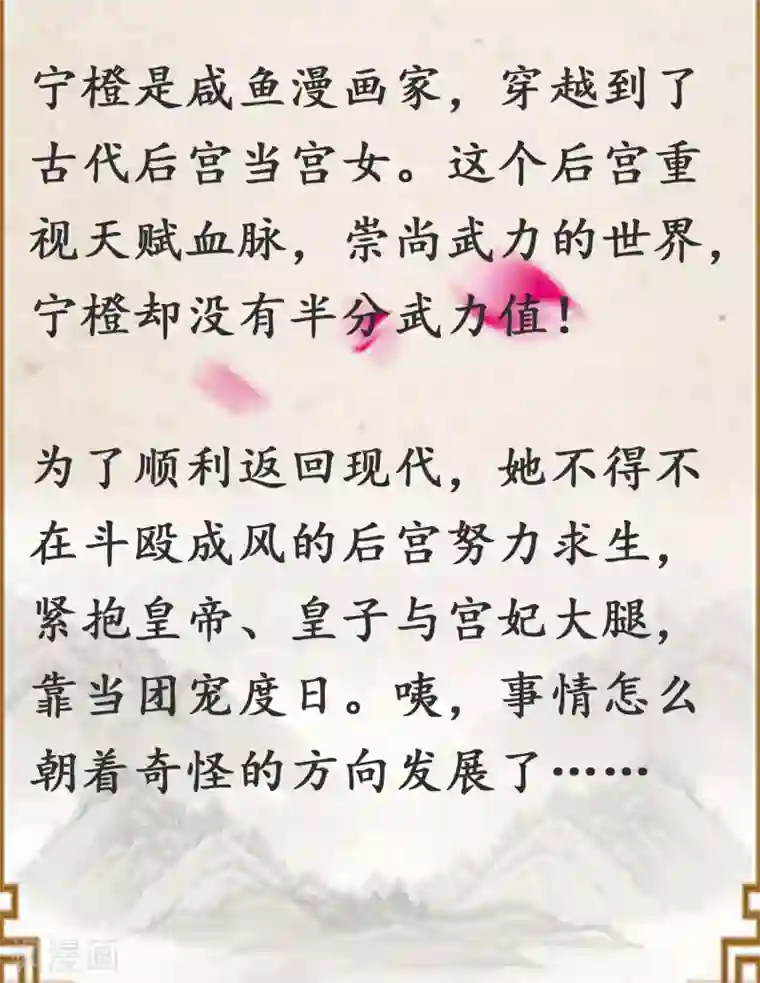 宁橙是咸鱼漫画家，穿越到了
古代后宫当宫女。这个后宫重
视天赋血脉，崇尚武力的世界，
宁橙却没有半分武力值！
为了顺利返回现代，她不得不
在斗殴成风的后宫努力求生，
紧抱皇帝、皇子与宫妃大腿，
靠当团宠度日。咦，事情怎么
朝着奇怪的方向发展了……
漫画